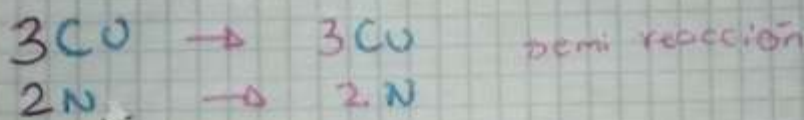 3CU → 3CU Demi reacción
2N → 2.N